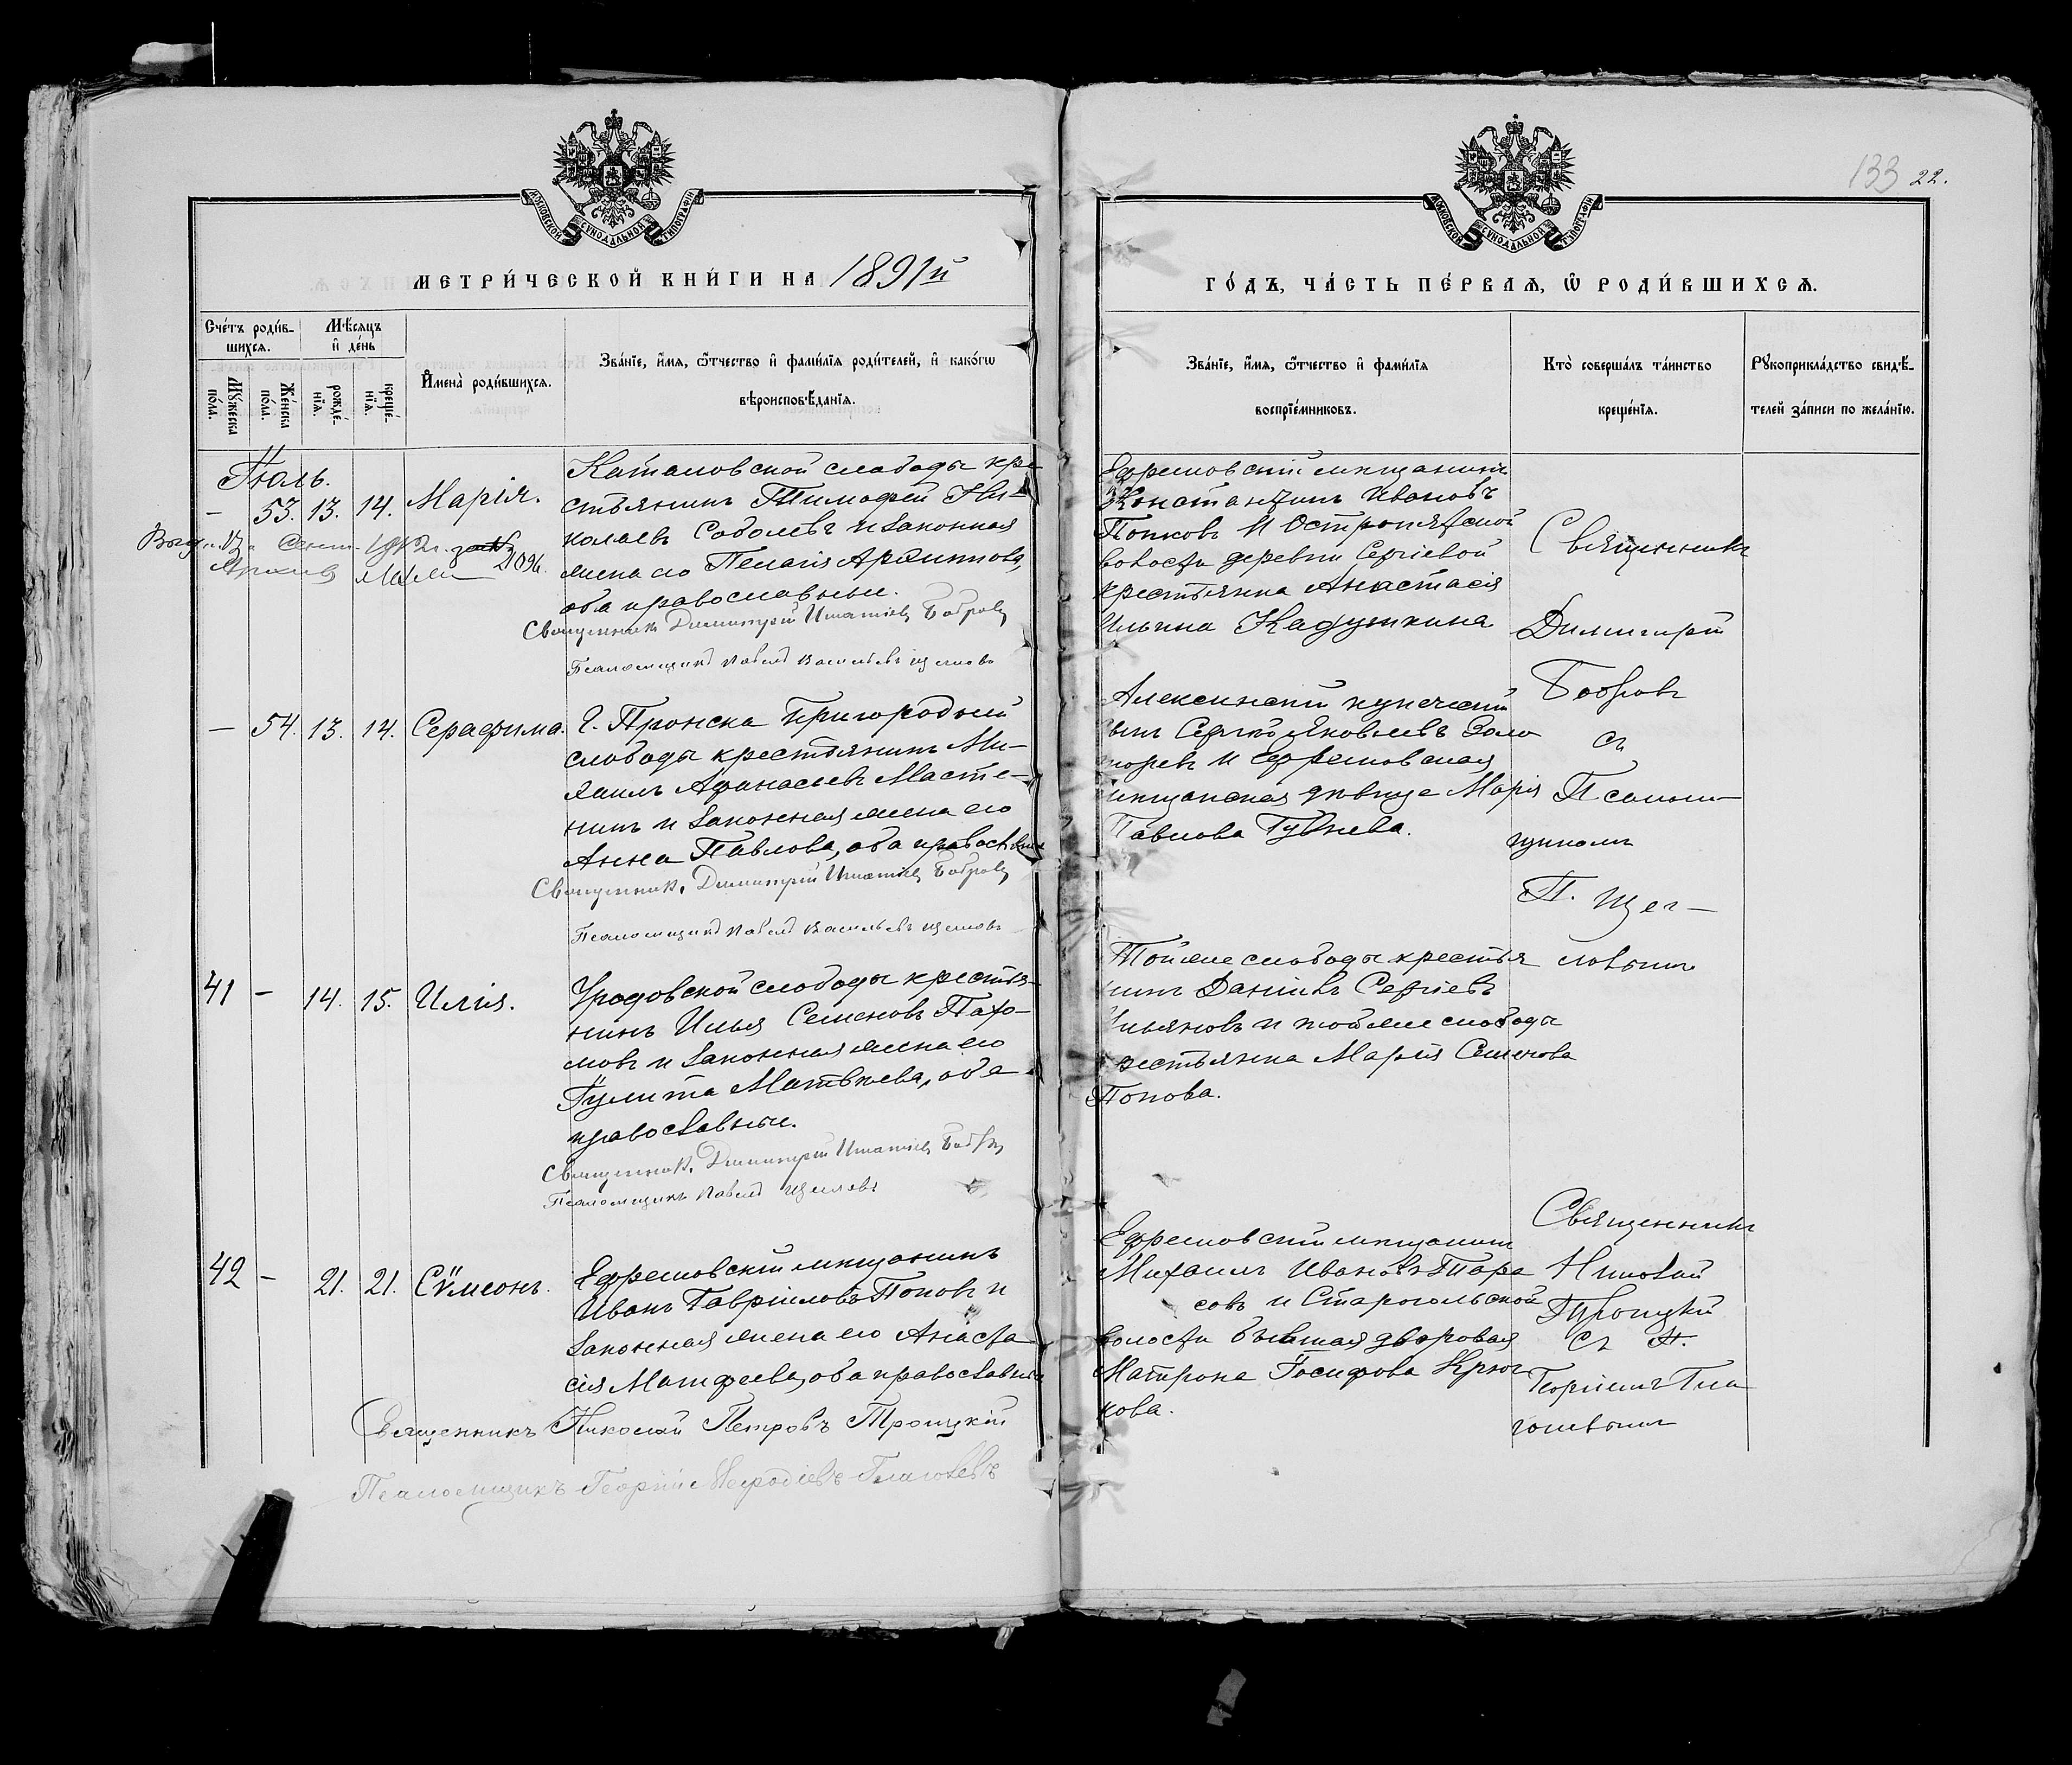 133 22.
МОСКОВСКОЙ СѴНОДАЛЬНОЙ ТИПОГРАФІИ
МОСКОВСКОЙ СѴНОДАЛЬНОЙ ТИПОГРАФІИ
МЕТРИ́ЧЕСКОЙ КНИ́ГИ НА 1891й
ГО́ДЪ, ЧА́СТЬ ПЕ́РВАѦ, Ѽ РОДИ́ВШИХСѦ.
Сче́тъ роди́в-
шихся.
Мѣ́сяцъ
и́ де́нь
Мꙋжеска
по́ла.
Же́нска
по́ла.
рожде́-
нїѧ.
креще́-
нїѧ.
И҆мена̀ роди́вшихся.
Зва́нїе, и҆́мя, ѻ҆́тчество и҆ фами́лїя роди́телей, и҆ како́гѡ
вѣроисповѣ́данїя.
Зва́нїе, и҆́мя, ѻ҆́тчество и҆ фами́лїя
воспрїе́мниковъ.
Кто̀ соверша́лъ та́инство
креще́нїя.
Рꙋкоприкла́дство свидѣ́-
телей за́писи по жела́нїю.
Іюль.
– 53. 13. 14. Марія.
Каталовской слободы кре
стьянинъ Тимофей Ни-
колаевъ Соболевъ и законная
жена его Пелагія
оба православные.
Священникъ Димитрій Игнатіевъ Бобровъ
Псаломщикъ Павелъ Васильевъ Щегловъ
Ефремовскій мѣщанинъ
Константинъ Ивановъ
Попковъ и Остропятской
волости деревни Сергіевой
крестьянка Анастасія
Ильина Кадушкина
Священникъ
Димитрій
Бобровъ
съ
Псалом-
щикомъ
П. Щег-
ловымъ
– 54. 13. 14. Серафима.
Г. Пронска Пригородной
слободы крестьянинъ Ми-
хаилъ Афанасьевъ Масте-
нинъ и законная жена его
Анна Павлова, оба православные
Священникъ Димитрій Игнатіевъ Бобровъ
Псаломщикъ Павелъ Васильевъ Щегловъ
Алексинскій купеческій
сынъ Сергѣй Яковлевъ Золо
торевъ и Ефремовская
мѣщанская дѣвица Марія
Павлова Гувнева.
41 – 14. 15. Илія.
Уродовской слободы крестья-
нинъ Илья Семеновъ Пахо-
мовъ и законная жена его
Іулита Матвѣева, оба
православные.
Священникъ Димитрій Игнатіевъ Бобровъ
Псаломщикъ Павелъ Щегловъ
Той же слободы крестья
нинъ Даніилъ Сергіевъ
Ульяновъ и той же слободы
крестьянка Марія Семенова
Попова.
42 – 21. 21. Сѵмеонъ.
Ефремовскій мѣщанинъ
Иванъ Гавріиловъ Поповъ и
законная жена его Анаста
сія Матфеева, оба православные
Священникъ Николай Петровъ Троицкій
Псаломщикъ Георгій Мефодіевъ Глаголевъ
Ефремовскій мѣщанинъ
Михаилъ Ивановъ Тара
совъ и Старогольской
волости бывшая дворовая
Матрона Іосифова Крюч
кова.
Священникъ
Николай
Троицкій
съ П.
Георгіемъ Гла
голевымъ